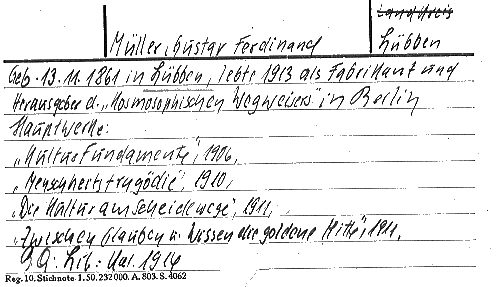 Landkreis
Müller, Gustav Ferdinand
Lübben
Geb. 13.11.1861 in Lübben, lebte 1913 als Fabrikant und
Herausgeber d. „Kosmosophischen Wegweisers" in Berlin
Hauptwerke:
„Kulturfundamente", 1906,
„Menschheitstragödie", 1910,
„Die Kultur am Scheidewege", 1911,
„Zwischen Glauben u. Wissen die goldene Mitte", 1911,
Lit:
Reg. 10. Stichnote. 1. 50. 232 000. A. 803. S. 4062